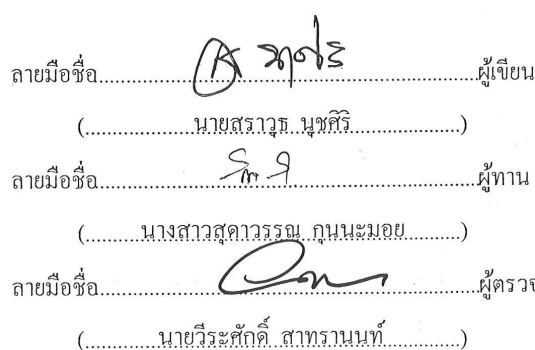 ลายมือชื่อ..............................................................ผู้เขียน
(..................นายสราวุธ นุชศิริ..................)
ลายมือชื่อ..............................................................ผู้ทาน
(..........นางสาวสุดาวรรณ กุนนะมอย..........)
ลายมือชื่อ..............................................................ผู้ตรวจ
(............นายวีระศักดิ์ สาทรานนท์............)